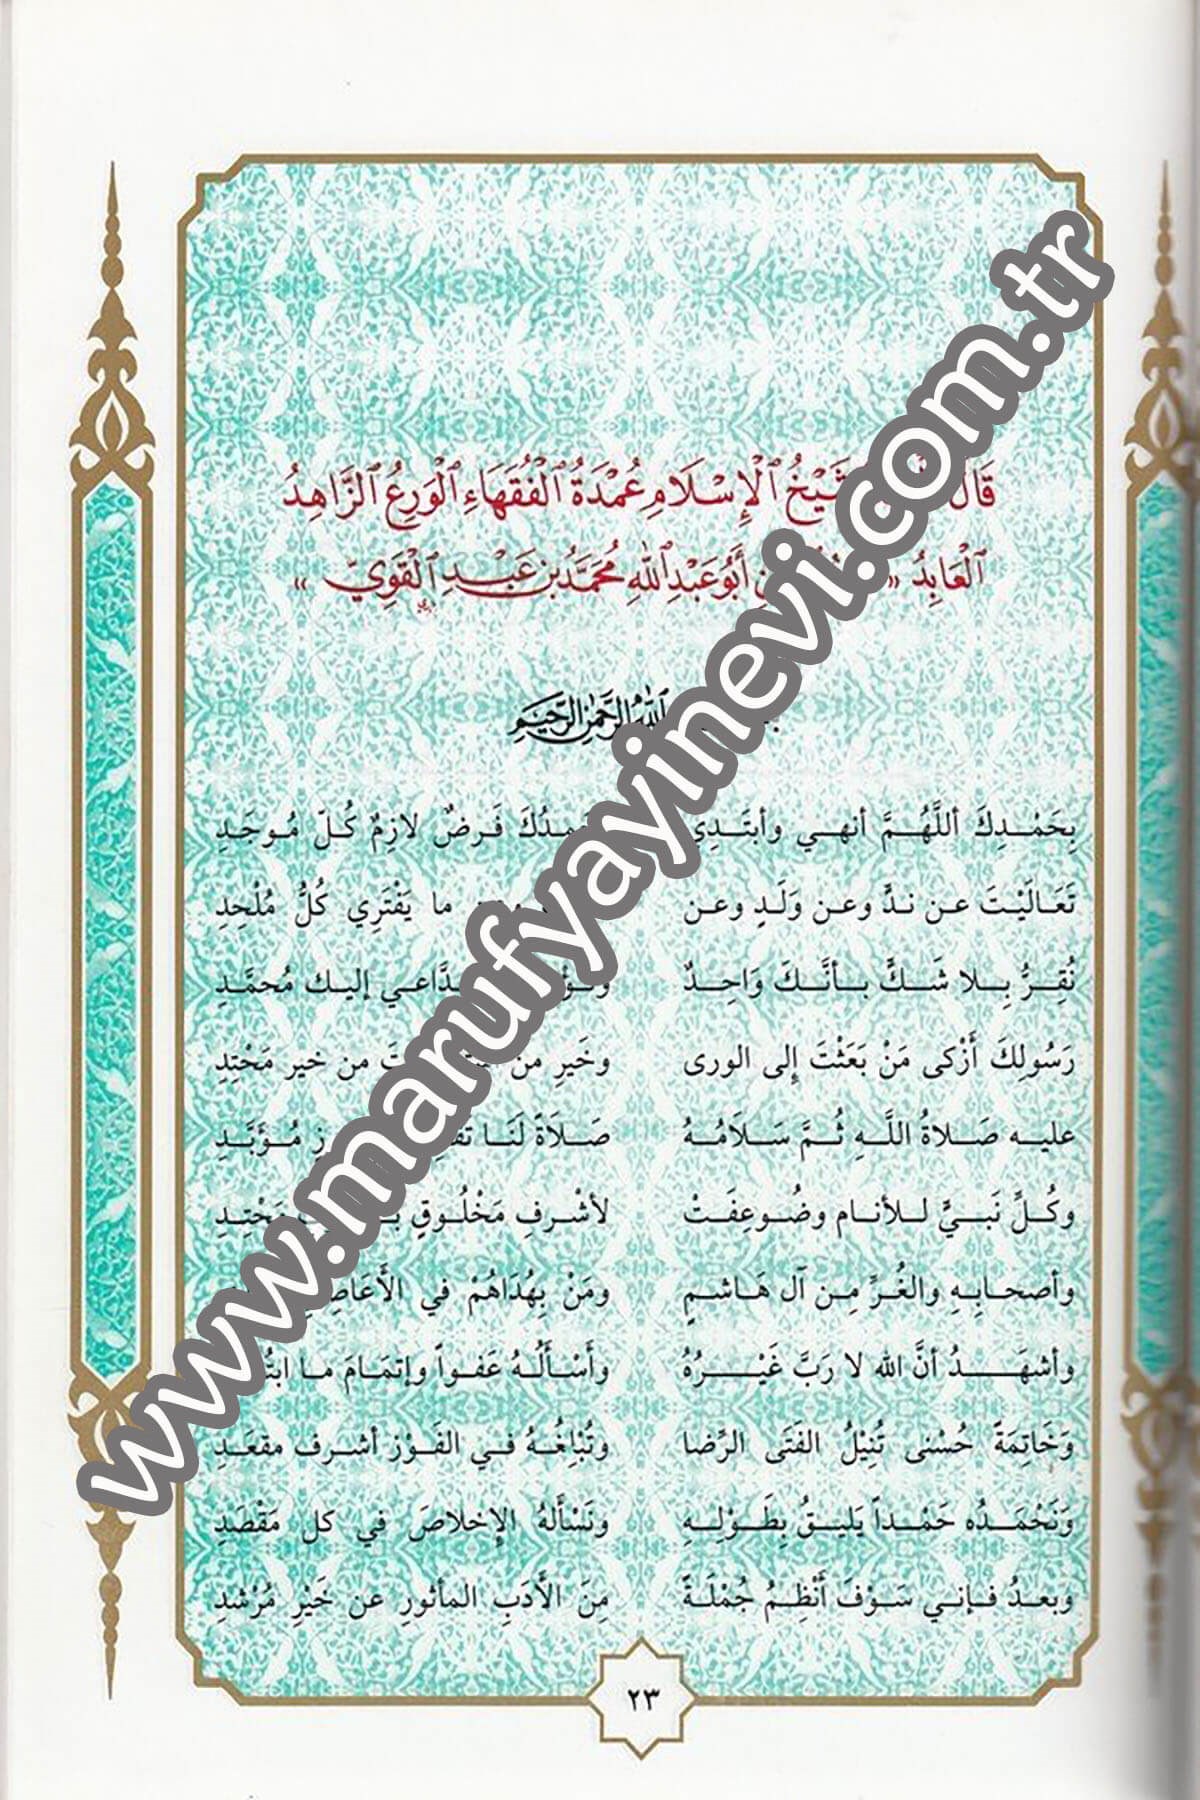 قَالَ شَيْخُ الْإِسْلَامِ عُمْدَةُ الْفُقَهَاءِ الْوَرِعُ الزَّاهِدُ
الْعَابِدُ « أَبُو عَبْدِ اللهِ مُحَمَّدُ بن عَبْدِ الْقَوِيّ »
اللهِ الرَّحْمٰنِ الرَّحِيمِ
بِحَمْدِكَ أللَّهُمَّ أنهي وأبتَدِي فَرضٌ لازِمٌ كُلّ مُوجَدِ
تَعَالَيْتَ عن ندٍّ وعن وَلَدٍ وعن ما يَفْتَرِي كُلُّ مُلْحِدِ
نُقِرُّ بِلا شَكٍّ بأنَّكَ وَاحِدٌ إليك مُحمَّدِ
رَسُولِكَ أَزْكى مَنْ بَعَثْتَ إلى الورى وخَيرِ من من خير مَحْتِدِ
عليه صَلاةُ اللَّهِ ثُمَّ سَلَامُهُ صَلاَةً لَنَا مُؤَبَّدِ
وكُلِّ نَبيٍّ للأنام وضُوعِفَتْ لأشْرفِ مَخْلُوقٍ مَحْتِدِ
وأصحابِهِ والغُرِّ مِن آل هَاشمٍ ومَنْ بِهُدَاهُمْ في
وأشهَدُ أنَّ الله لا رَبَّ غَيْرُهُ وأَسْأَلُهُ عَفواً وإتمَامَ ما
وَخَاتِمَةً حُسْنى تُنِيْلُ الفتَى الرِّضا وتُبْلِغُهُ في الفَوْز أشرف مقعَدِ
وَنَحْمَدُه حَمْداً يَليقُ بِطَولِهِ ونَسْأَلهُ الإخلاصَ في كل مَقْصَدِ
وبعدُ فإني سَوْفَ أَنْظِمُ جُمْلَةً مِنَ الأَدَبِ المأثورِ عن خَيْرِ مُرْشدِ
٢٣
www.marufyayinevi.com.tr